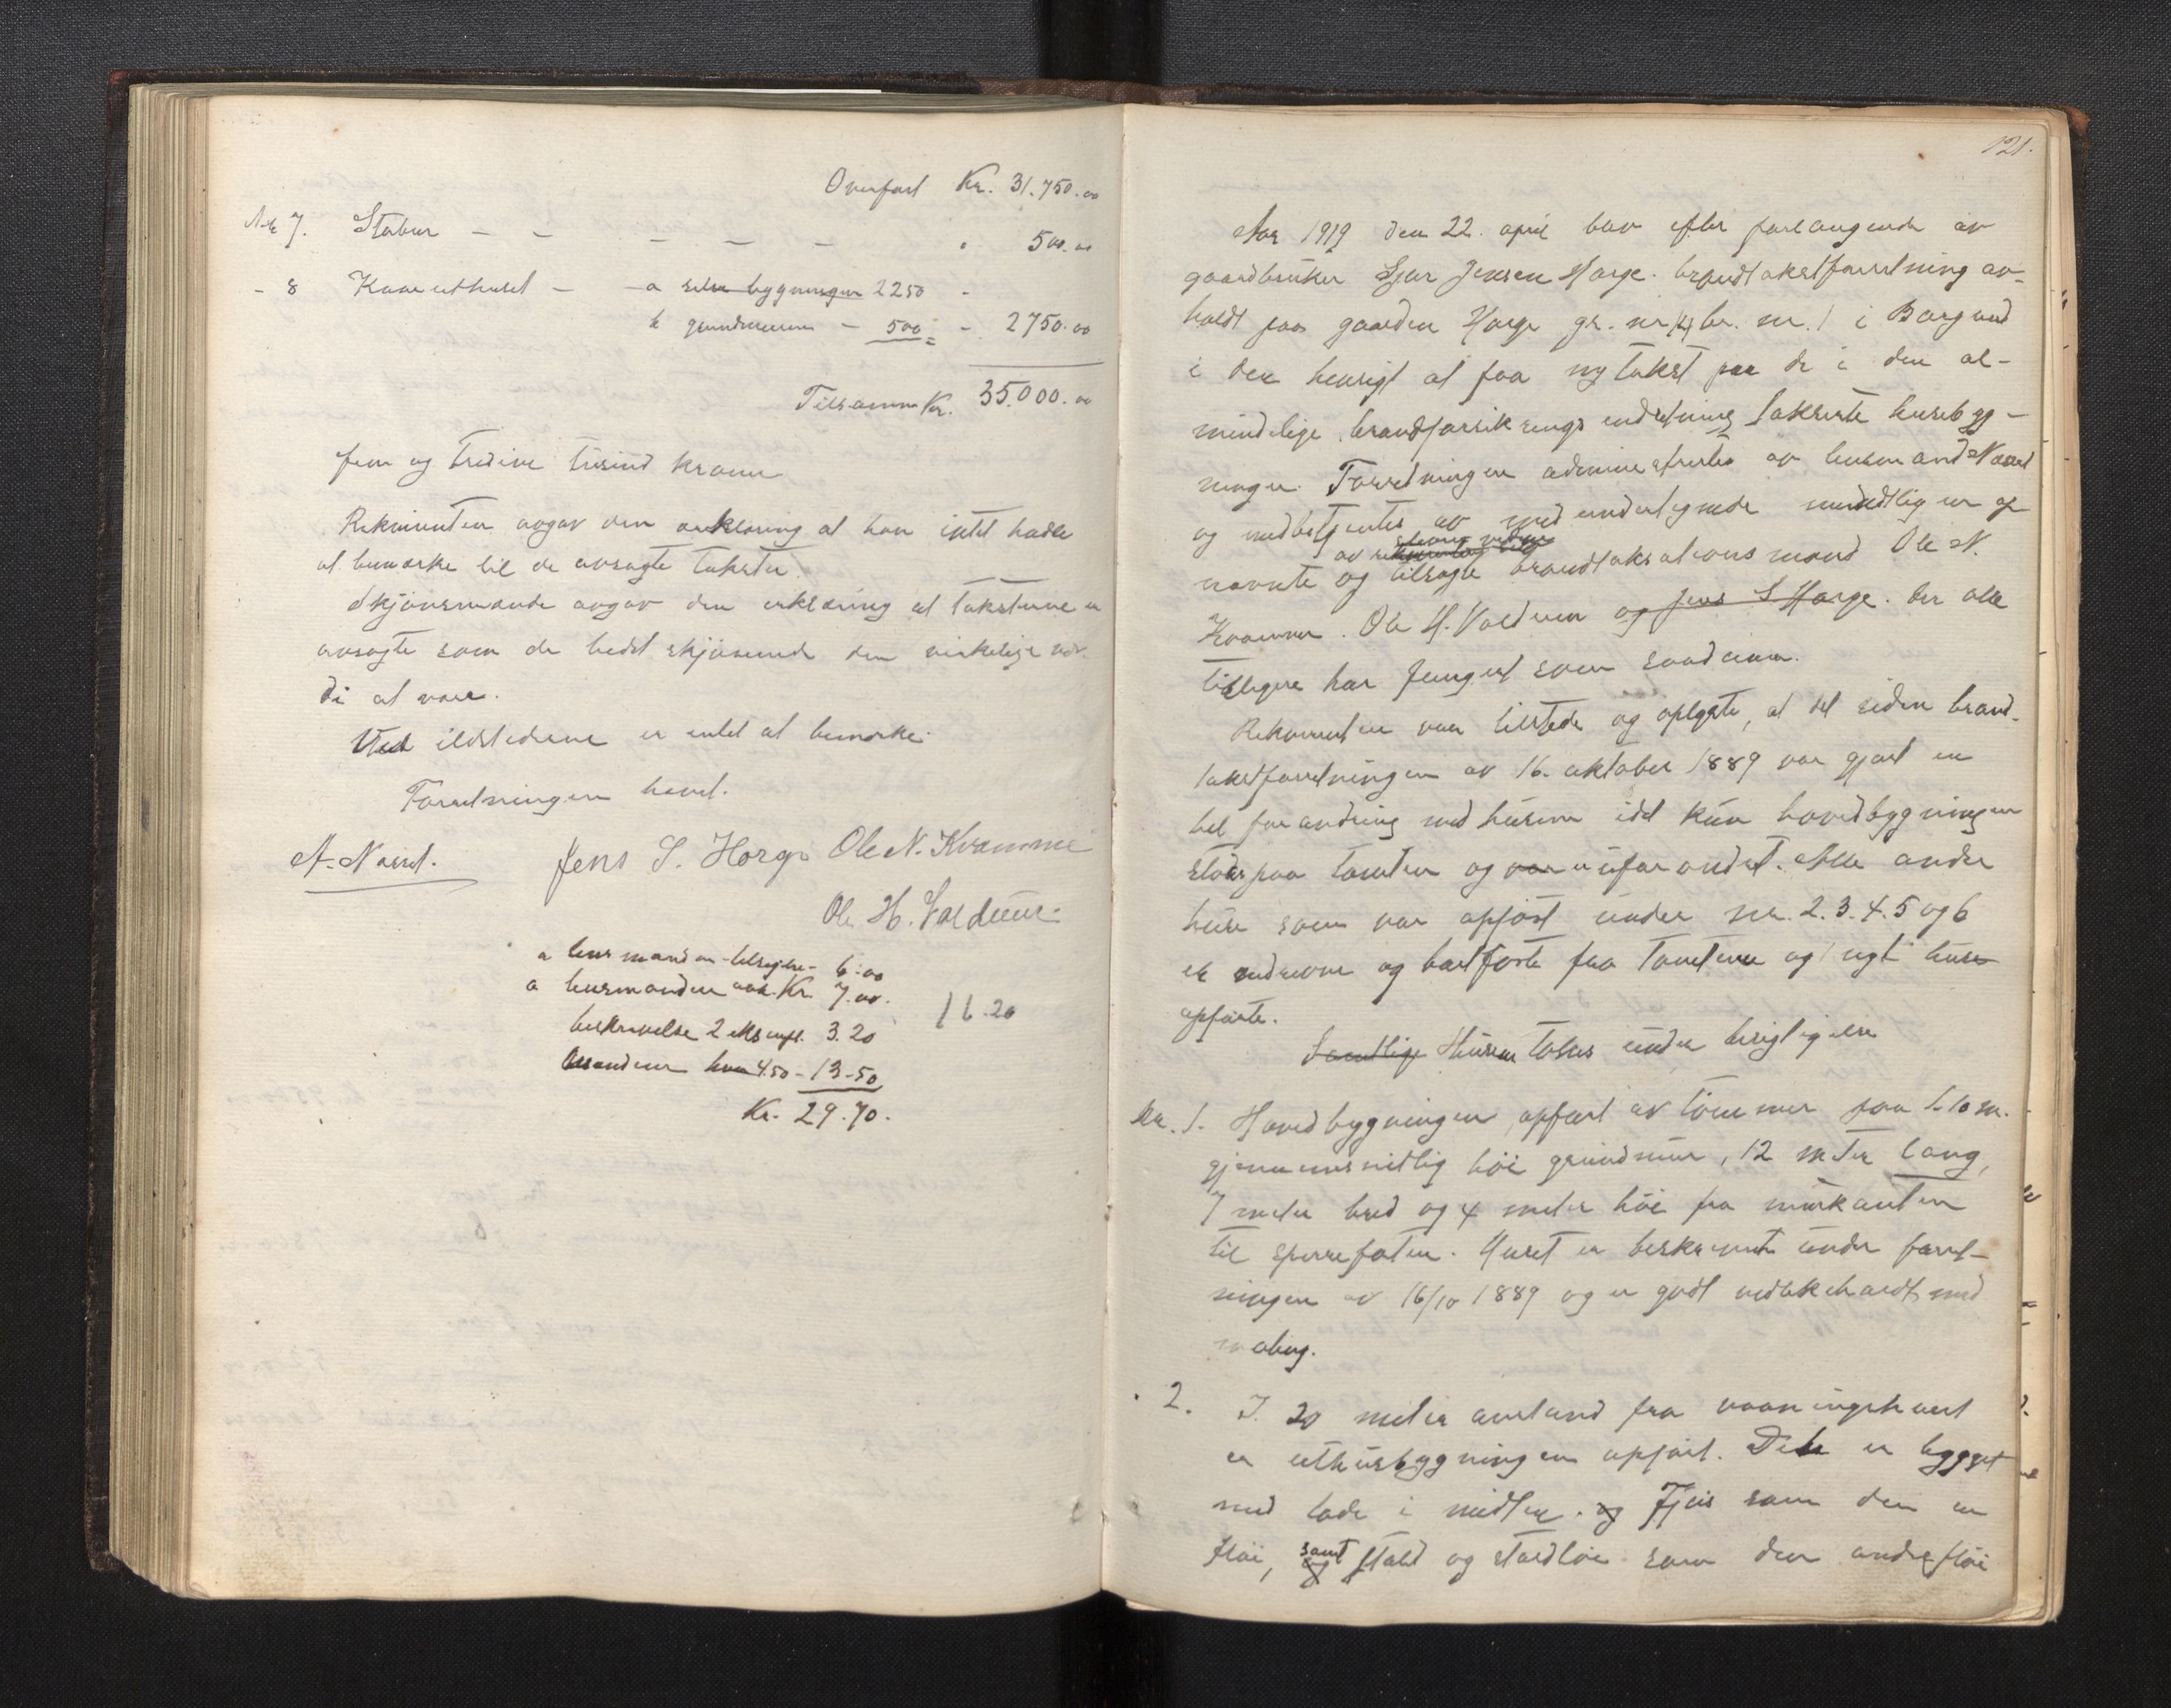 Overført Kr. 31.750.00
No 7. Stabur — — — — — " 500.00
- 8 — a selve bygningen 2250 -
b grundmuren — 500 - 2750.00
Tilsammen Kr. 35.000.00
fem og tredive tusind kroner
Rekvirenten avgav den erklæring at han intet hadde
at bemerke til de avsagte takster.
Skjønsmændene avgav den erklæring at takstene er
avsagte som de bedst skjønnende den virkelige vær-
di at være.
Ved ildstederne er intet at bemerke.
Forretningen hævet.
A. Næsset. Jens S. Horge Ole N. Kvamme
Ole H. Voldum
a lensmanden tilsigelse - 6.00
a lensmanden Kr. 7.00.
beskrivelse 2 eksempl. 3.20
16.20
Mændene hver 4.50 - 13-50
Kr. 29.70.
121.
Aar 1919 den 22. april blev efter forlangende av
gaardbruker Jensen Horge. brandtakstforretning av-
holdt paa gaarden Horge gr. nr. br. nr. 1 i Borgund
i den hensigt at faa ny takst paa de i den al-
mindelige brandforsikringsindretning takserte husebyg-
ninger. Forretningen administrertes av lensmand Næsset
og medbetjentes av med undertegnede
av rekvirenten
nævnte og tilsagte brandtaksationsmænd Ole N.
Kvamme. Ole H. Voldum og Jens S Horge. der alle
tidligere har fungert som saadanne.
Rekvirenten var tilstede og oplyste, at det siden brand-
takstforretningen av 16. oktober 1889 var gjort en
hel forandring med husene idet kun hovedbygningen
staar paa tomten og var uforandret. Alle andre
huse som var opført under nr. 2. 3. 4. 5 og 6
er nedrevne og bortførte fra tomtene og nye huse
opførte.
Samtlige Husene toges under besigtigelse
Nr. 1. Hovedbygningen, opført av tømmer paa 1.10 m.
gjennemsnitlig høi grundmur, 12 meter lang,
7 meter bred og 4 meter høi fra murkanten
til sperrefoten. Huset er beskrevet under forret-
ningen av 16/10 1889 og er godt vedlikeholdt med
maling.
" 2. I 20 meter avstand fra vaaningshuset
er uthusbygningen opført. Dette er bygget
med lade i midten. og Fjøs som den en
fløi, og samt stald og staldløe som den andre fløi